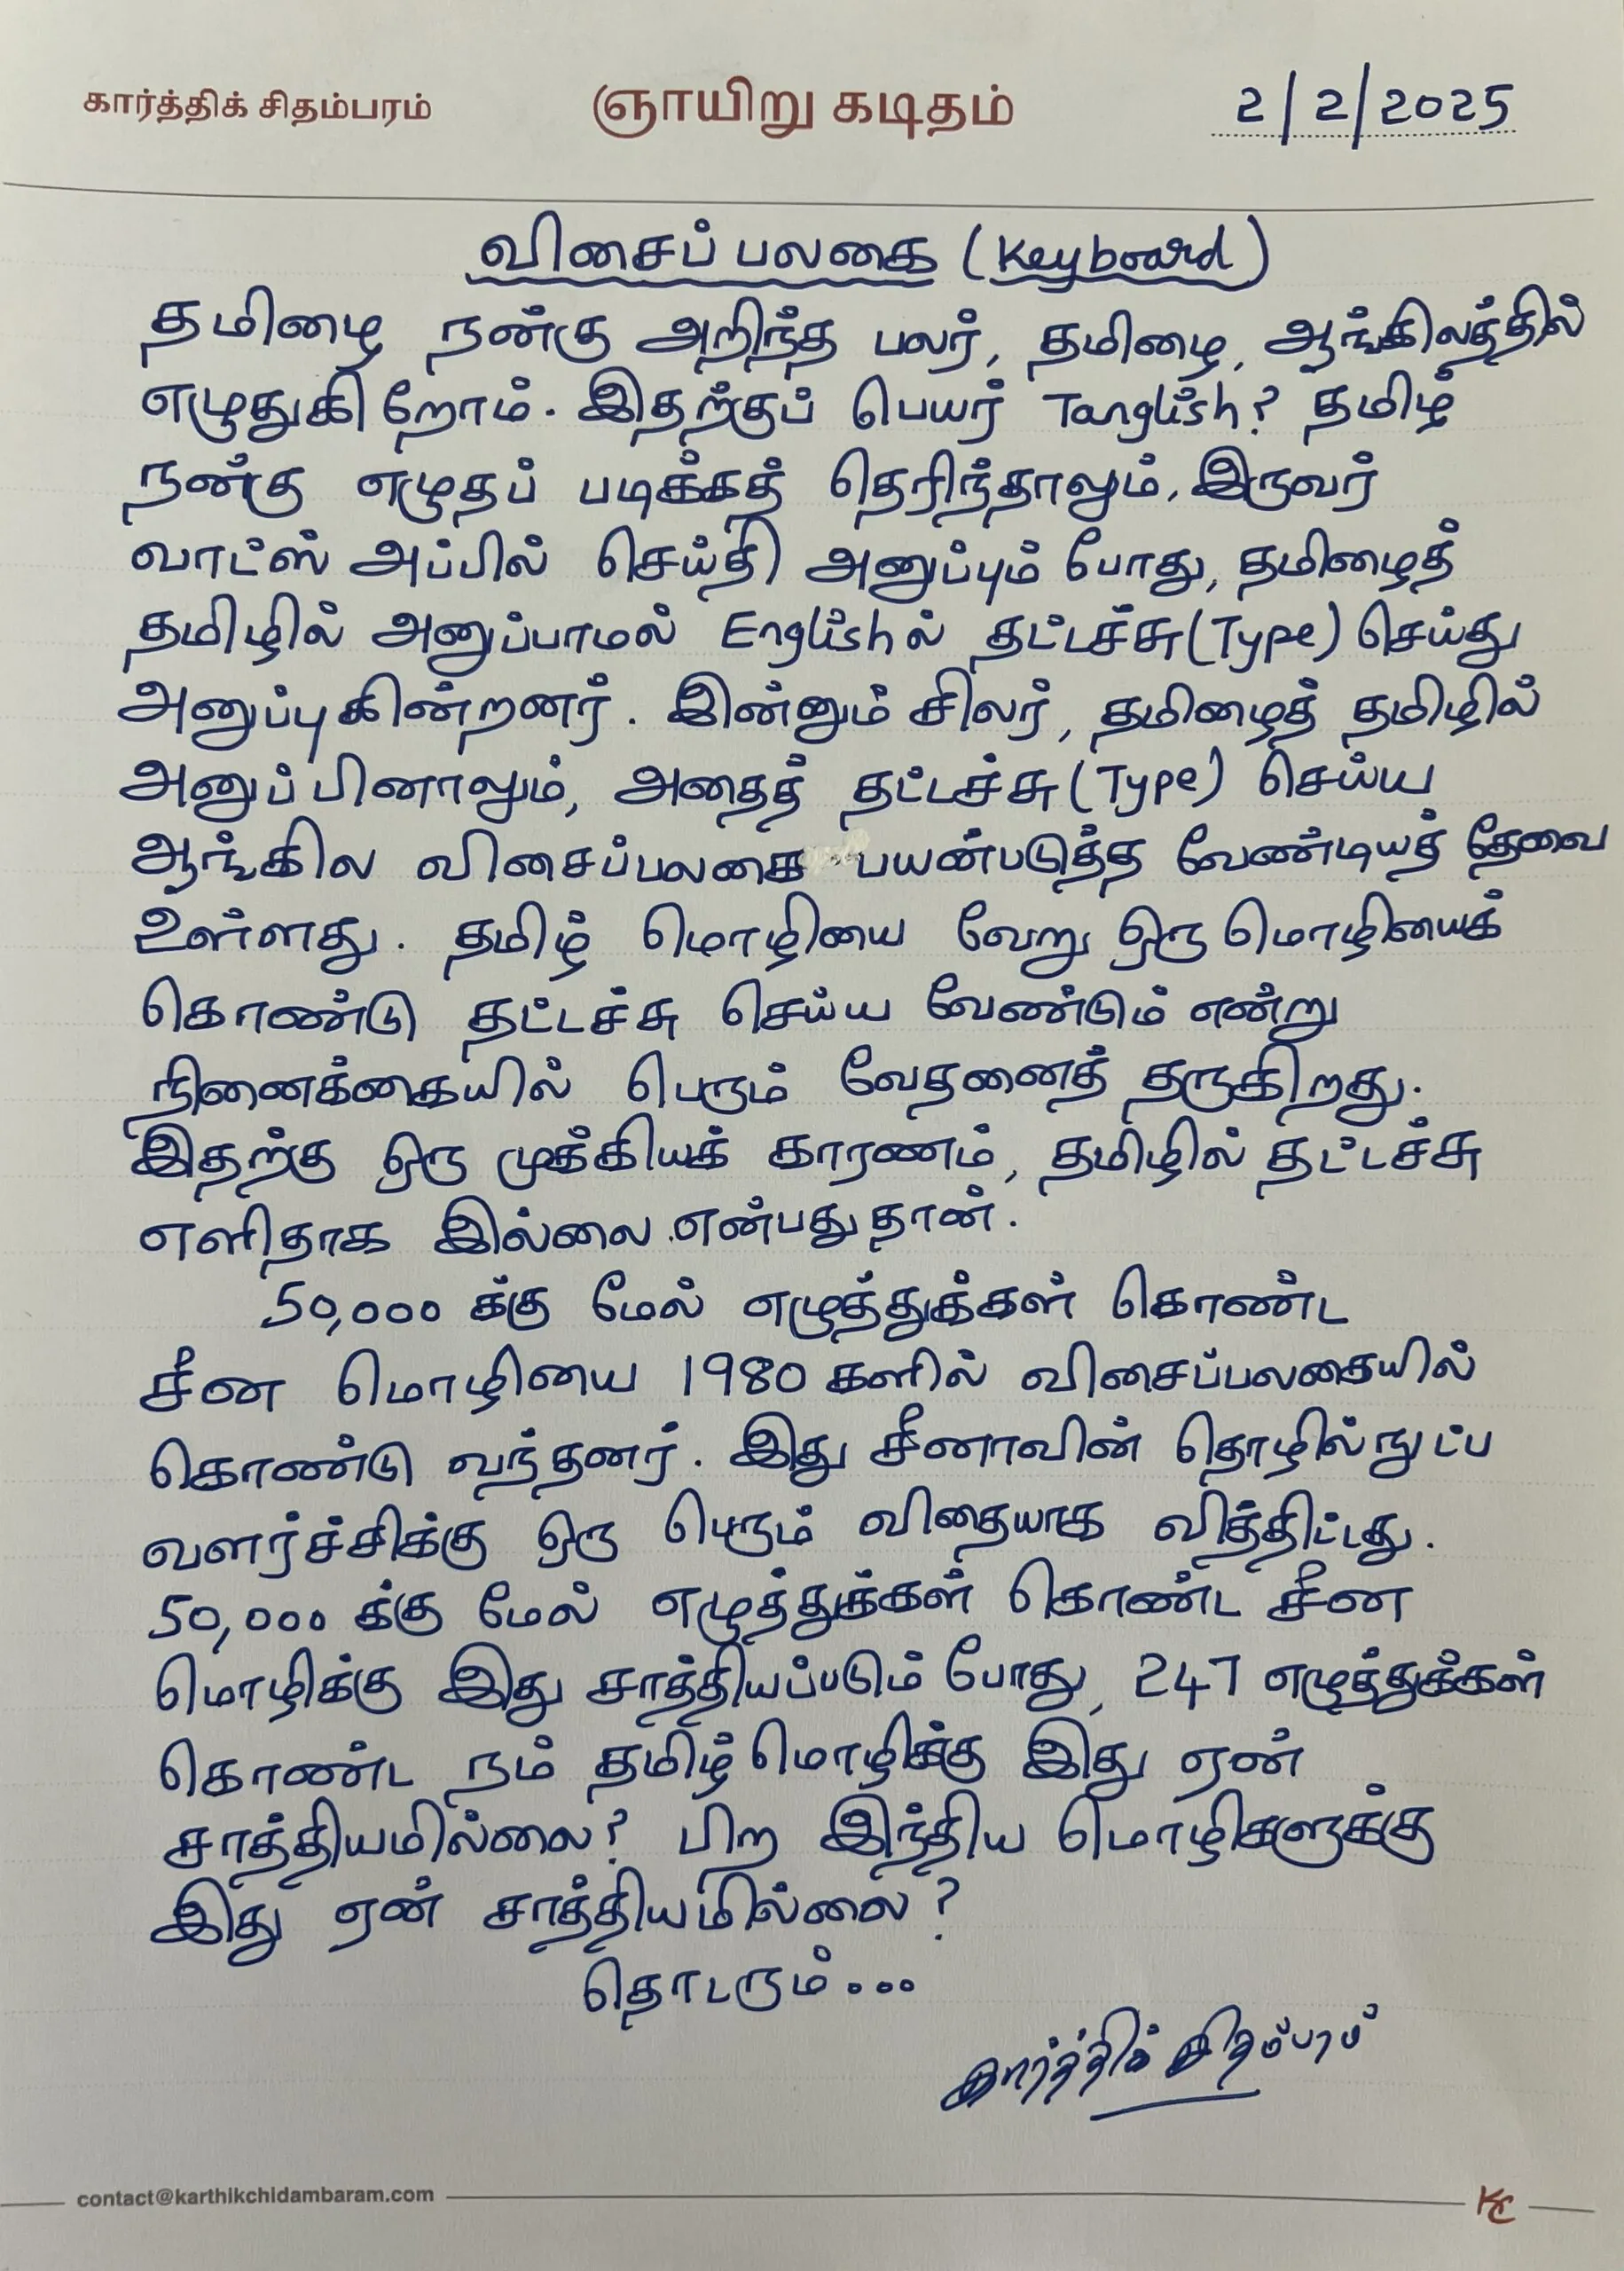 கார்த்திக் சிதம்பரம் ஞாயிறு கடிதம் 2/2/2025
விசைப் பலகை (Keyboard)
தமிழை நன்கு அறிந்த பலர், தமிழை, ஆங்கிலத்தில்
எழுதுகிறோம். இதற்குப் பெயர் Tanglish? தமிழ்
நன்கு எழுதப் படிக்கத் தெரிந்தாலும், இருவர்
வாட்ஸ் அப்பில் செய்தி அனுப்பும் போது, தமிழைத்
தமிழில் அனுப்பாமல் Englishல் தட்டச்சு (Type) செய்து
அனுப்புகின்றனர். இன்னும் சிலர், தமிழைத் தமிழில்
அனுப்பினாலும், அதைத் தட்டச்சு (Type) செய்ய
ஆங்கில விசைப்பலகை பயன்படுத்த வேண்டியத் தேவை
உள்ளது. தமிழ் மொழியை வேறு ஒரு மொழியைக்
கொண்டு தட்டச்சு செய்ய வேண்டும் என்று
நினைக்கையில் பெரும் வேதனைத் தருகிறது.
இதற்கு ஒரு முக்கியக் காரணம், தமிழில் தட்டச்சு
எளிதாக இல்லை என்பது தான்.
50,000 க்கு மேல் எழுத்துக்கள் கொண்ட
சீன மொழியை 1980 களில் விசைப்பலகையில்
கொண்டு வந்தனர். இது சீனாவின் தொழில்நுட்ப
வளர்ச்சிக்கு ஒரு பெரும் விதையாக வித்திட்டது.
50,000 க்கு மேல் எழுத்துக்கள் கொண்ட சீன
மொழிக்கு இது சாத்தியப்படும் போது, 247 எழுத்துக்கள்
கொண்ட நம் தமிழ் மொழிக்கு இது ஏன்
சாத்தியமில்லை? பிற இந்திய மொழிகளுக்கு
இது ஏன் சாத்தியமில்லை?
தொடரும்...
கார்த்திக் சிதம்பரம்
contact@karthikchidambaram.com KC